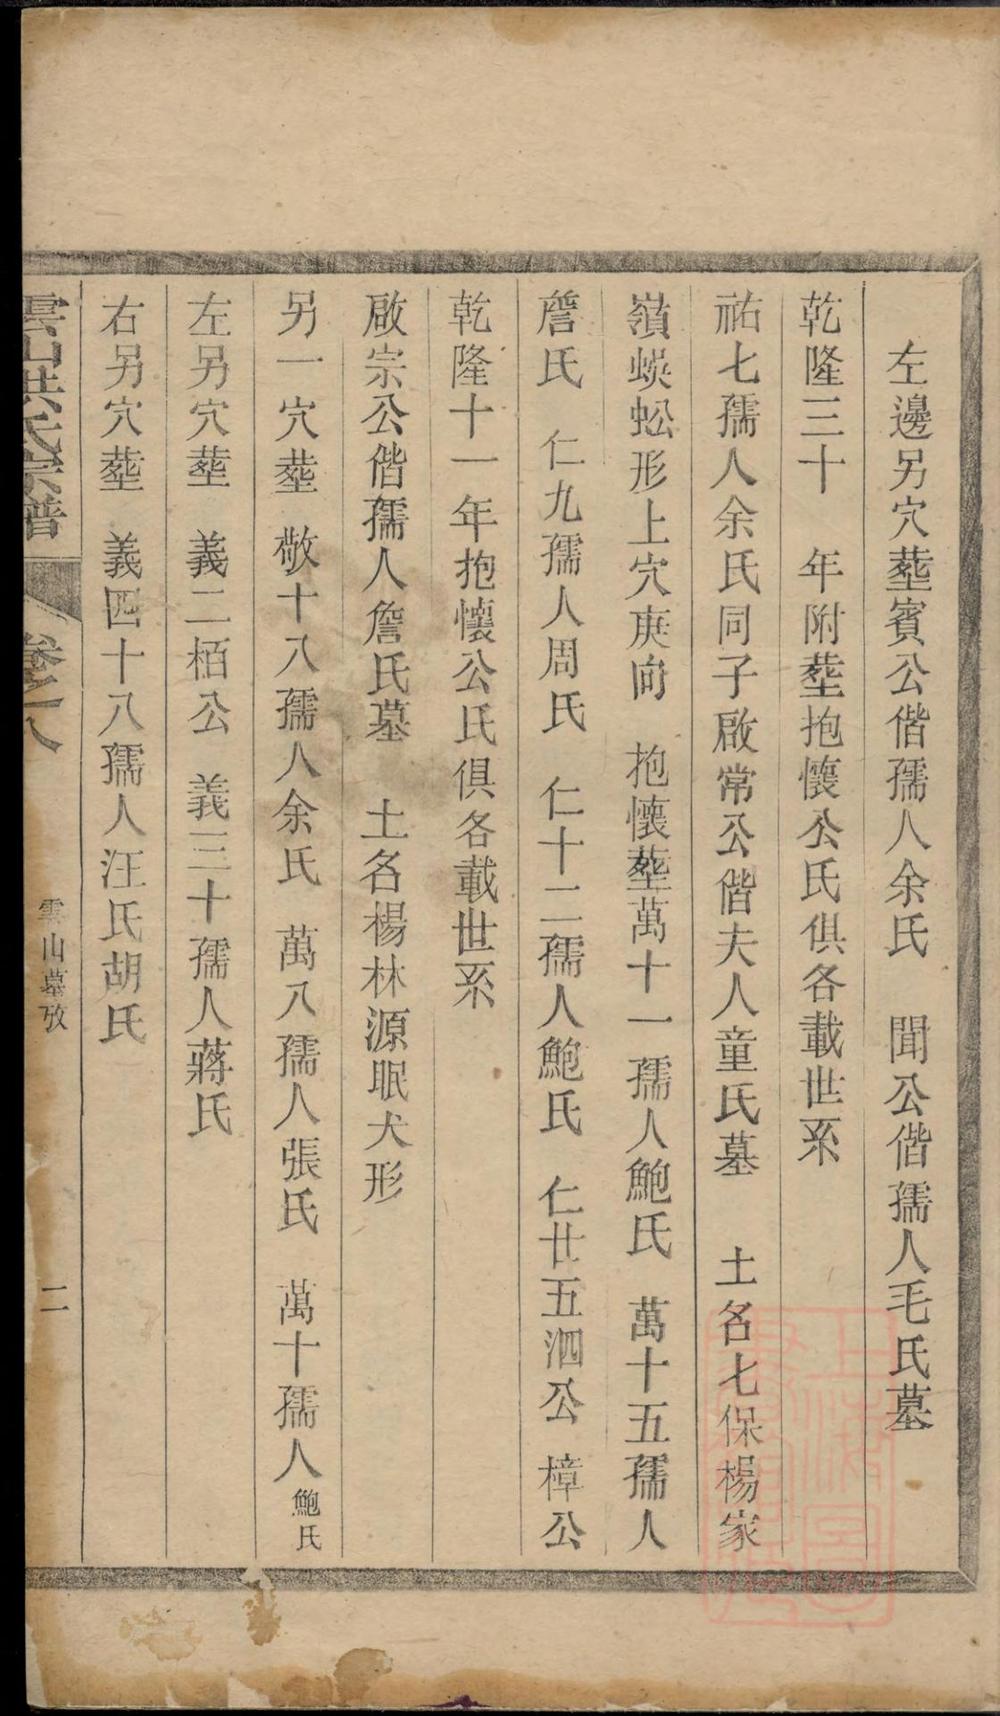 左邊另穴塟賓公偕孺人余氏　聞公偕孺人毛氏墓
乾隆三十　年附塟抱懷公氏俱各載世系
祐七孺人余氏同子啟常公偕夫人童氏墓　土名七保楊家
嶺蜈蚣形上穴庚向　抱懷塟萬十一孺人鮑氏　萬十五孺人
詹氏　仁九孺人周氏　仁十二孺人鮑氏　仁廿五泗公　樟公
乾隆十一年抱懷公氏俱各載世系
啟宗公偕孺人詹氏墓　土名楊林源眠犬形
另一穴塟　敬十八孺人余氏　萬八孺人張氏　萬十孺人鮑氏
左另穴塟　義二栢公　義三十孺人蔣氏
右另穴塟　義四十八孺人汪氏胡氏
雲山洪氏宗譜　卷之八　雲山墓攷　二